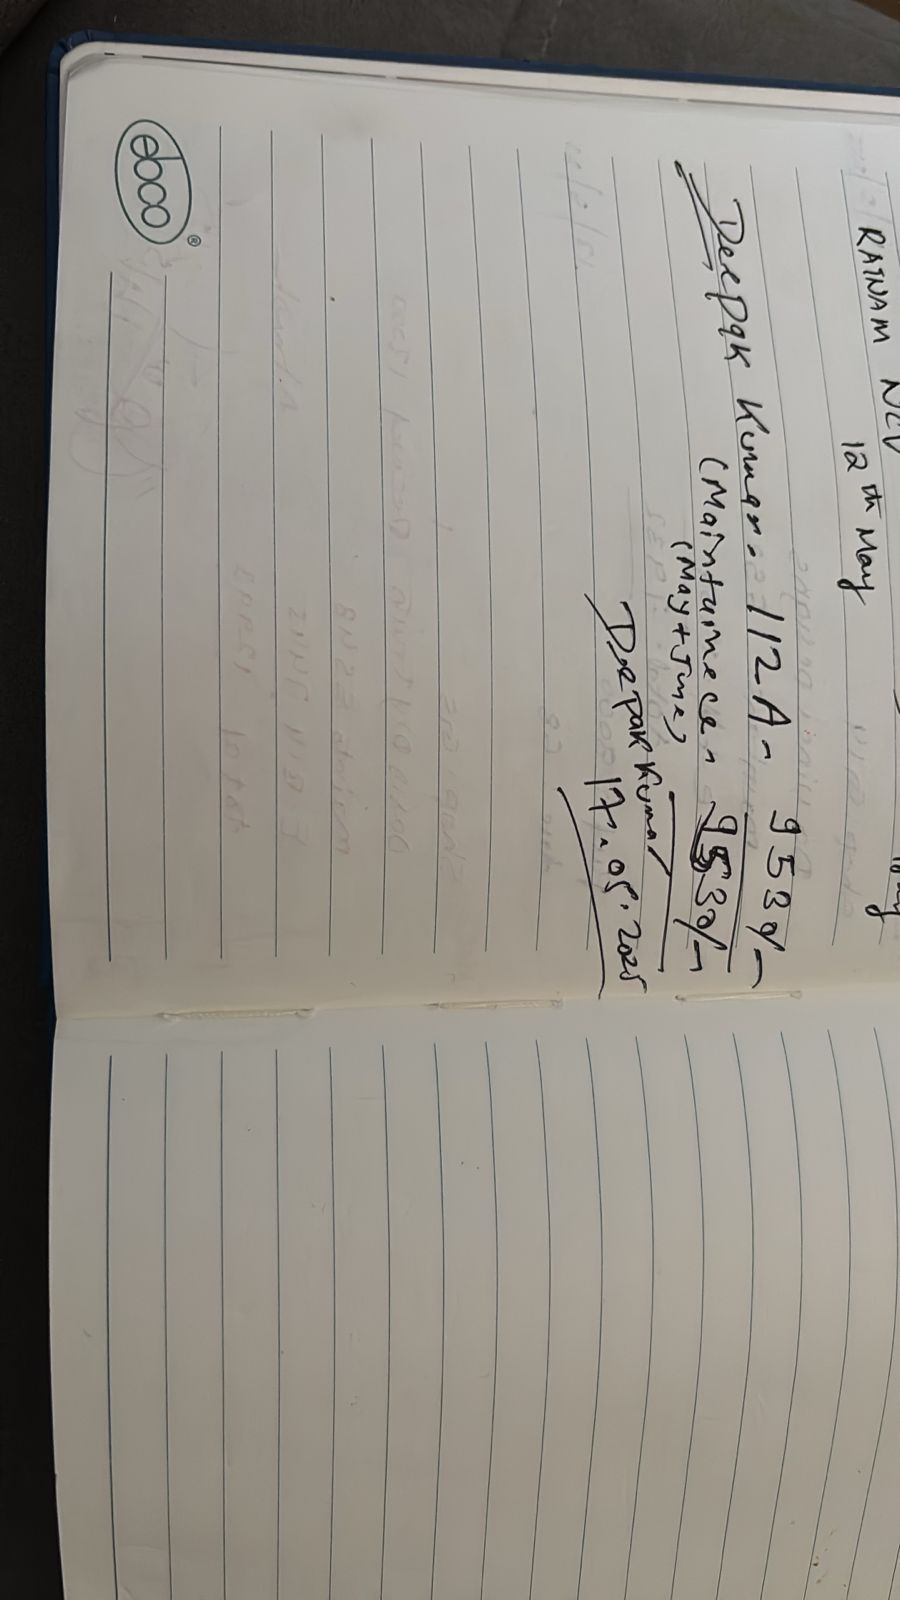 RATNAM
12th May
Deepak Kumar. 112A- 9530/-
(Maintainece- 9530/-
(May+June)
Deepak Kumar
17.05.2025
ebco®